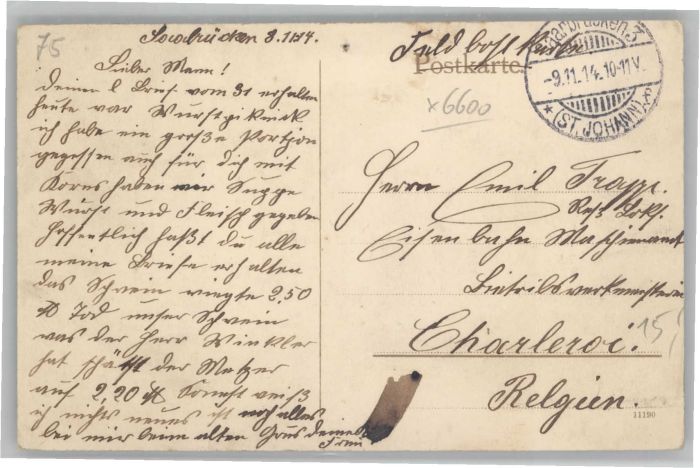 75
Saarbrücken 8.11.14.
Lieber Mann!
deinen l Brief vom 31 erhalten
heute war Wurstpiknik
ich habe ein große Portion
gegessen auch für dich mit
haben wir Suppe
Wurst und Fleisch gegeben
hoffentlich haßt du alle
meine Briefe erhalten
das Schwein 2,50
Tod unser Schwein
was der Herr Winkler
hat der Metzer
auf 2,20 Sonst weiß
ich nichts neues ist noch alles
bei mir beim alten Grus deine
Frau
Feldpostkarte
Postkarte.
x6600
Saarbrücken 3
-9.11.14.10-11V.
* (ST. JOHANN) *
Herrn Emil Trapp.
Res. Lokf.
Eisenbahn Maschinenamt
Charleroi.
15,
Belgien.
11190